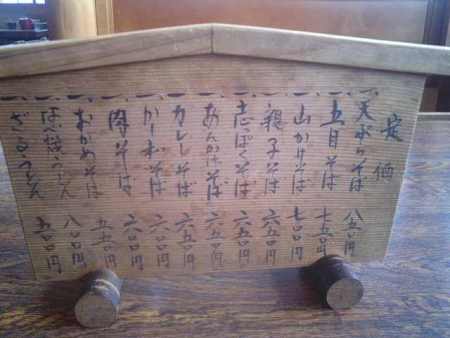 定価
一、天ぷらそば 八五〇円
一、五目そば 七五〇円
一、山かけそば 七〇〇円
一、親子そば 六五〇円
一、志っぽくそば 六五〇円
一、あんかけそば 六五〇円
一、カレーそば 六五〇円
一、かしわそば 六〇〇円
一、肉そば 六〇〇円
一、おかめそば 五五〇円
一、なべ焼うどん 八〇〇円
一、ざるうどん